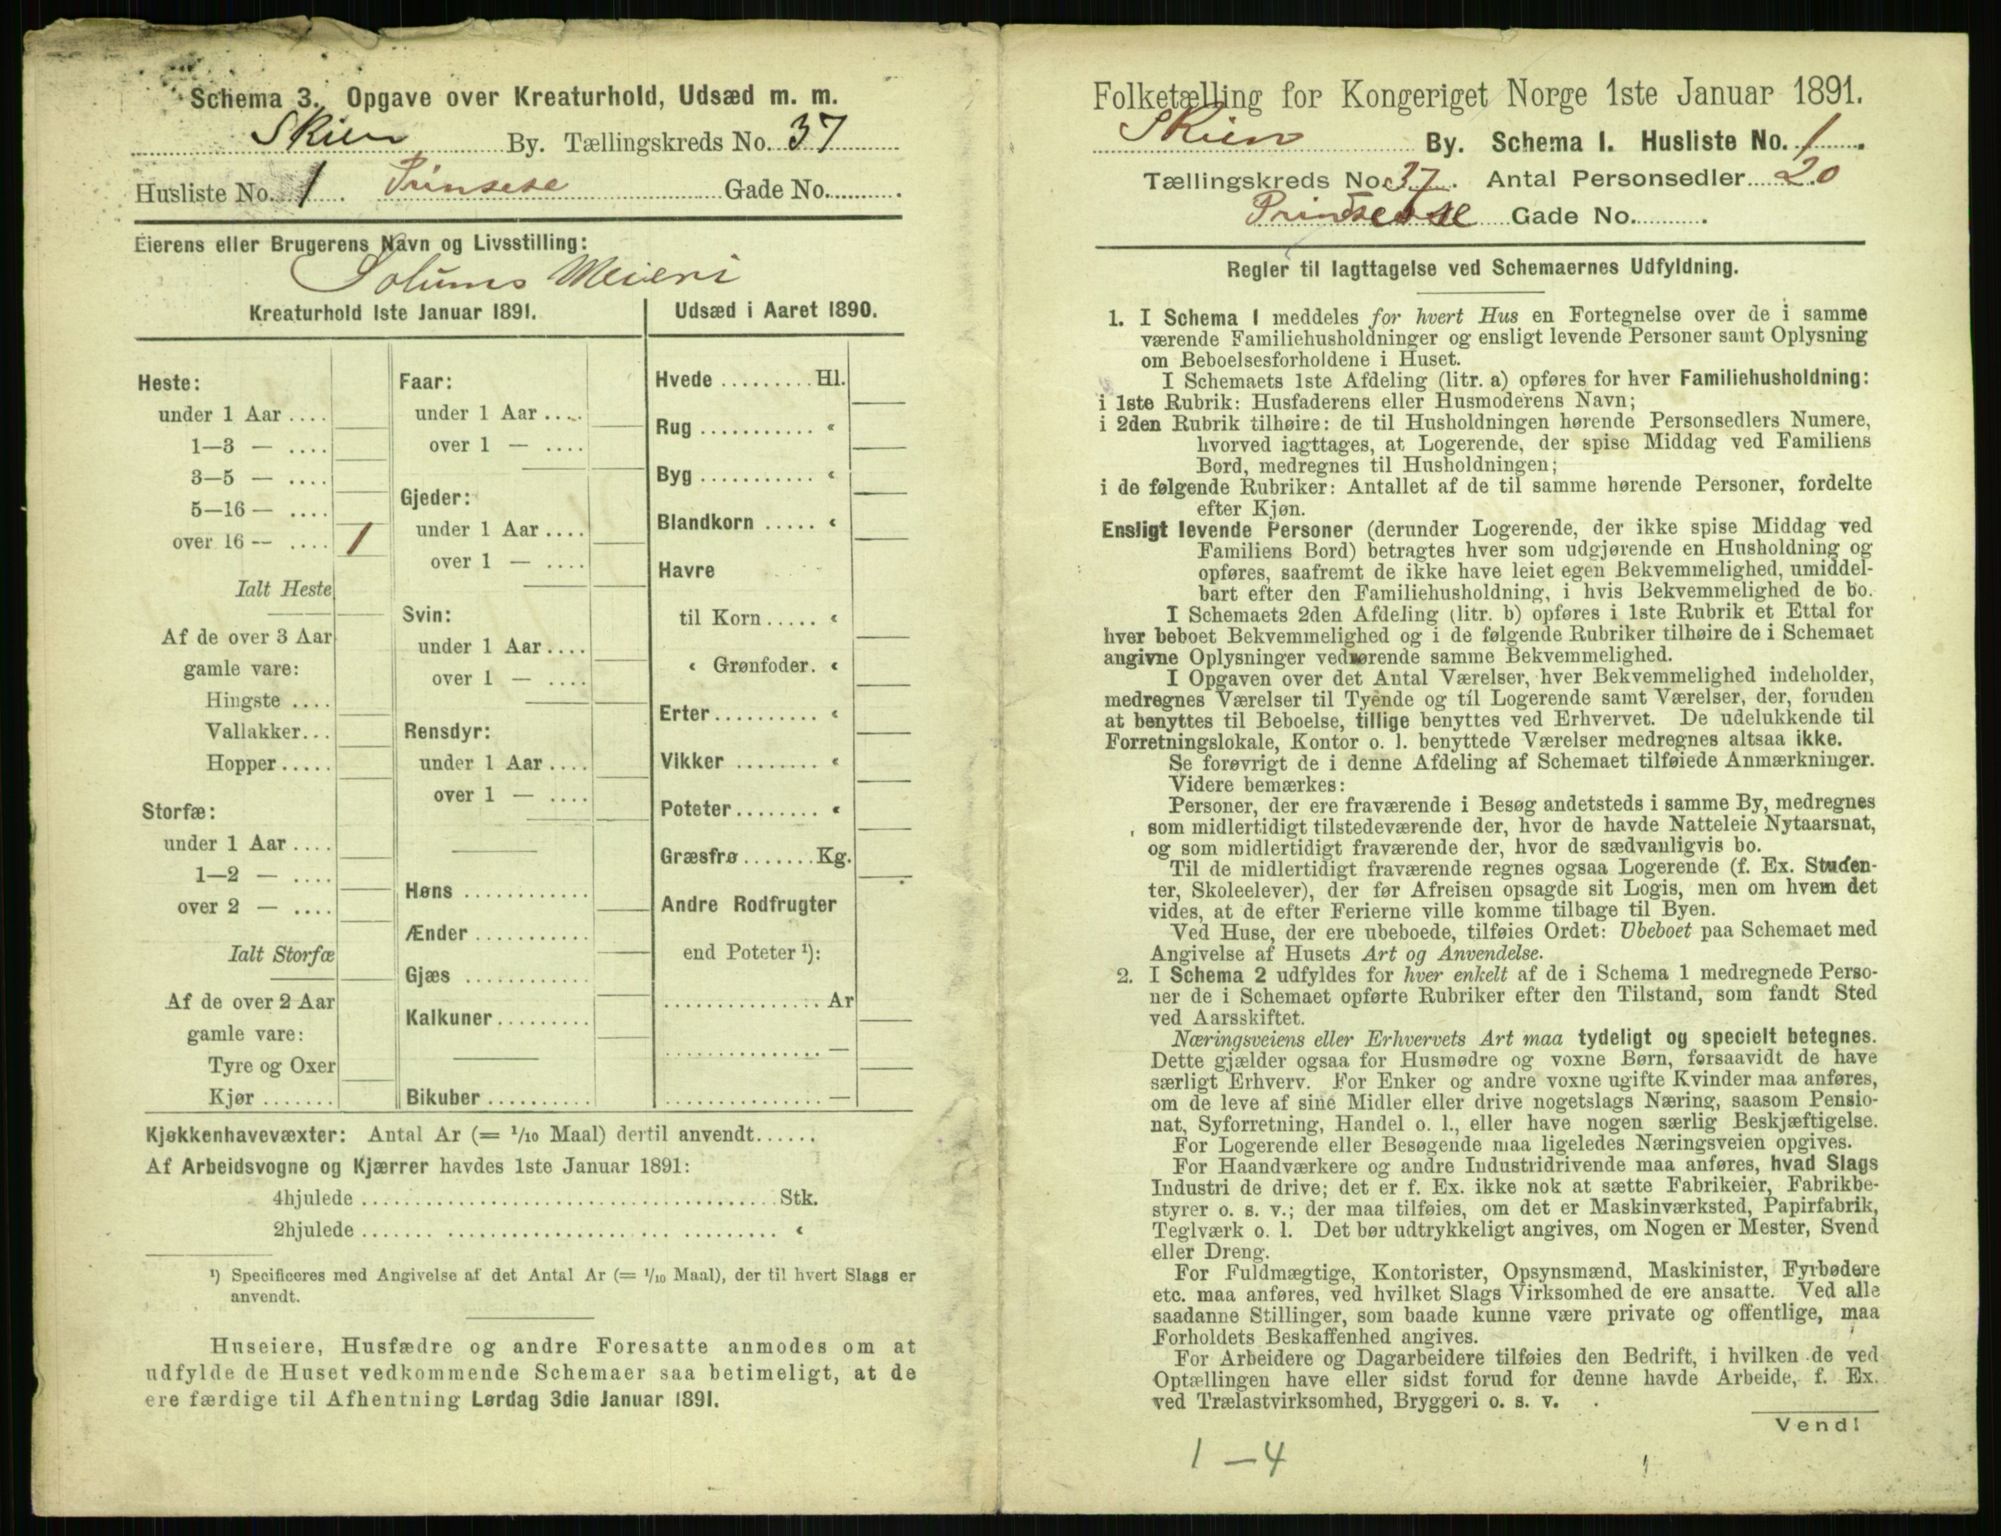 Schema 3. Opgave over Kreaturhold, Udsæd m. m.
Skien By. Tællingskreds No. 37
Husliste No. 1 Prinsese Gade No.
Eierens eller Brugerens Navn og Livsstilling:
Solums Meieri
Kreaturhold 1ste Januar 1891.
Heste:
under 1 Aar ....
1—3 — ....
3—5 — ....
5—16 — ....
over 16 — .... 1
Ialt Heste
Af de over 3 Aar
gamle vare:
Hingste ....
Vallakker...
Hopper.....
Storfæ:
under 1 Aar ....
1—2 — ....
over 2 — ....
Ialt Storfæ
Af de over 2 Aar
gamle vare:
Tyre og Oxer
Kjør .......
Faar:
under 1 Aar ....
over 1 — ....
Gjeder:
under 1 Aar ....
over 1 — ....
Svin:
under 1 Aar ....
over 1 — ....
Rensdyr:
under 1 Aar ....
over 1 — ....
Høns ............
Ænder ...........
Gjæs ............
Kalkuner.........
Bikuber ..........
Udsæd i Aaret 1890.
Hvede ......... Hl.
Rug ........... «
Byg ........... «
Blandkorn ..... «
Havre
til Korn ..... «
« Grønfoder. «
Erter.......... «
Vikker ........ «
Poteter........ «
Græsfrø.......Kg.
Andre Rodfrugter
end Poteter ¹):
............... Ar
............... —
............... —
Kjøkkenhavevæxter: Antal Ar (= 1/10 Maal) dertil anvendt......
Af Arbeidsvogne og Kjærrer havdes 1ste Januar 1891:
4hjulede ........................................ Stk.
2hjulede ........................................ «
¹) Specificeres med Angivelse af det Antal Ar (= 1/10 Maal), der til hvert Slags er
anvendt.
Huseiere, Husfædre og andre Foresatte anmodes om at
udfylde de Huset vedkommende Schemaer saa betimeligt, at de
ere færdige til Afhentning Lørdag 3die Januar 1891.
Folketælling for Kongeriget Norge 1ste Januar 1891.
Skien By. Schema 1. Husliste No. 1
Tællingskreds No. 37. Antal Personsedler 20
Prinsesse Gade No.
Regler til Iagttagelse ved Schemaernes Udfyldning.
1. I Schema 1 meddeles for hvert Hus en Fortegnelse over de i samme
værende Familiehusholdninger og ensligt levende Personer samt Oplysning
om Beboelsesforholdene i Huset.
I Schemaets 1ste Afdeling (litr. a) opføres for hver Familiehusholdning:
i 1ste Rubrik: Husfaderens eller Husmoderens Navn;
i 2den Rubrik tilhøire: de til Husholdningen hørende Personsedlers Numere,
hvorved iagttages, at Logerende, der spise Middag ved Familiens
Bord, medregnes til Husholdningen;
i de følgende Rubriker: Antallet af de til samme hørende Personer, fordelte
efter Kjøn.
Ensligt levende Personer (derunder Logerende, der ikke spise Middag ved
Familiens Bord) betragtes hver som udgjørende en Husholdning og
opføres, saafremt de ikke have leiet egen Bekvemmelighed, umiddel-
bart efter den Familiehusholdning, i hvis Bekvemmelighed de bo.
I Schemaets 2den Afdeling (litr. b) opføres i 1ste Rubrik et Ettal for
hver beboet Bekvemmelighed og i de følgende Rubriker tilhøire de i Schemaet
angivne Oplysninger vedrørende samme Bekvemmelighed.
I Opgaven over det Antal Værelser, hver Bekvemmelighed indeholder,
medregnes Værelser til Tyende og til Logerende samt Værelser, der, foruden
at benyttes til Beboelse, tillige benyttes ved Erhvervet. De udelukkende til
Forretningslokale, Kontor o. l. benyttede Værelser medregnes altsaa ikke.
Se forøvrigt de i denne Afdeling af Schemaet tilføiede Anmærkninger.
Videre bemærkes:
Personer, der ere fraværende i Besøg andetsteds i samme By, medregnes
som midlertidigt tilstedeværende der, hvor de havde Natteleie Nytaarsnat,
og som midlertidigt fraværende der, hvor de sædvanligvis bo.
Til de midlertidigt fraværende regnes ogsaa Logerende (f. Ex. Studen-
ter, Skoleelever), der før Afreisen opsagde sit Logis, men om hvem det
vides, at de efter Ferierne ville komme tilbage til Byen.
Ved Huse, der ere ubeboede, tilføies Ordet: Ubeboet paa Schemaet med
Angivelse af Husets Art og Anvendelse.
2. I Schema 2 udfyldes for hver enkelt af de i Schema 1 medregnede Perso-
ner de i Schemaet opførte Rubriker efter den Tilstand, som fandt Sted
ved Aarsskiftet.
Næringsveiens eller Erhvervets Art maa tydeligt og specielt betegnes.
Dette gjælder ogsaa for Husmødre og voxne Børn, forsaavidt de have
særligt Erhverv. For Enker og andre voxne ugifte Kvinder maa anføres,
om de leve af sine Midler eller drive nogetslags Næring, saasom Pensio-
nat, Syforretning, Handel o. l., eller have nogen særlig Beskjæftigelse.
For Logerende eller Besøgende maa ligeledes Næringsveien opgives.
For Haandværkere og andre Industridrivende maa anføres, hvad Slags
Industri de drive; det er f. Ex. ikke nok at sætte Fabrikeier, Fabrikbe-
styrer o. s. v.; der maa tilføies, om det er Maskinværksted, Papirfabrik,
Teglværk o. l. Det bør udtrykkeligt angives, om Nogen er Mester, Svend
eller Dreng.
For Fuldmægtige, Kontorister, Opsynsmænd, Maskinister, Fyrbødere
etc. maa anføres, ved hvilket Slags Virksomhed de ere ansatte. Ved alle
saadanne Stillinger, som baade kunne være private og offentlige, maa
Forholdets Beskaffenhed angives.
For Arbeidere og Dagarbeidere tilføies den Bedrift, i hvilken de ved
Optællingen have eller sidst forud for denne havde Arbeide, f. Ex.
ved Trælastvirksomhed, Bryggeri o. s. v.
Vend!
1 — 4